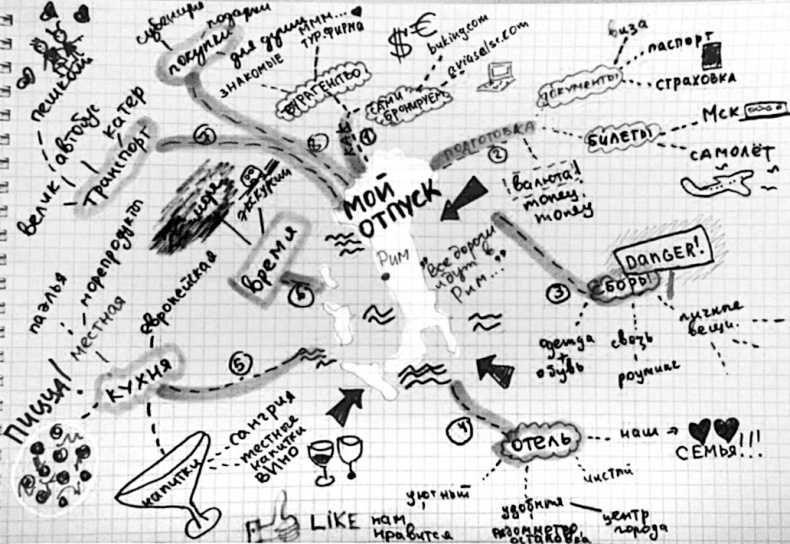 сувениры
подарки
покупки
для души
МММ...
ТУР.ФИРМА
ЗНАКОМЫЕ
ТУРАГЕНТСТВО
$ €
buking.com
aviaselsr.com
САМИ
БРОНИРУЕМ
КАК
1
МОЙ
ОТПУСК
Рим
"Все дороги
идут в
Рим..."
ПОДГОТОВКА
2
ДОКУМЕНТЫ
виза
паспорт
СТРАХОВКА
БИЛЕТЫ
Мск
САМОЛЁТ
валюта!
money,
money
3
СБОРЫ
DANGER!
одежда
+
обувь
связь
роуминг
личные
вещи
4
ОТЕЛЬ
наш
СЕМЬЯ!!!
чистый
уютный
удобный
центр
города
остановка
5
КУХНЯ
европейская
местная
морепродукты
паэлья
ПИЦЦА!
напитки
сангрия
местные
напитки
ВИНО
6
время
море
экскурсии
транспорт
пешком
автобус
катер
велик
LIKE
нам
нравится